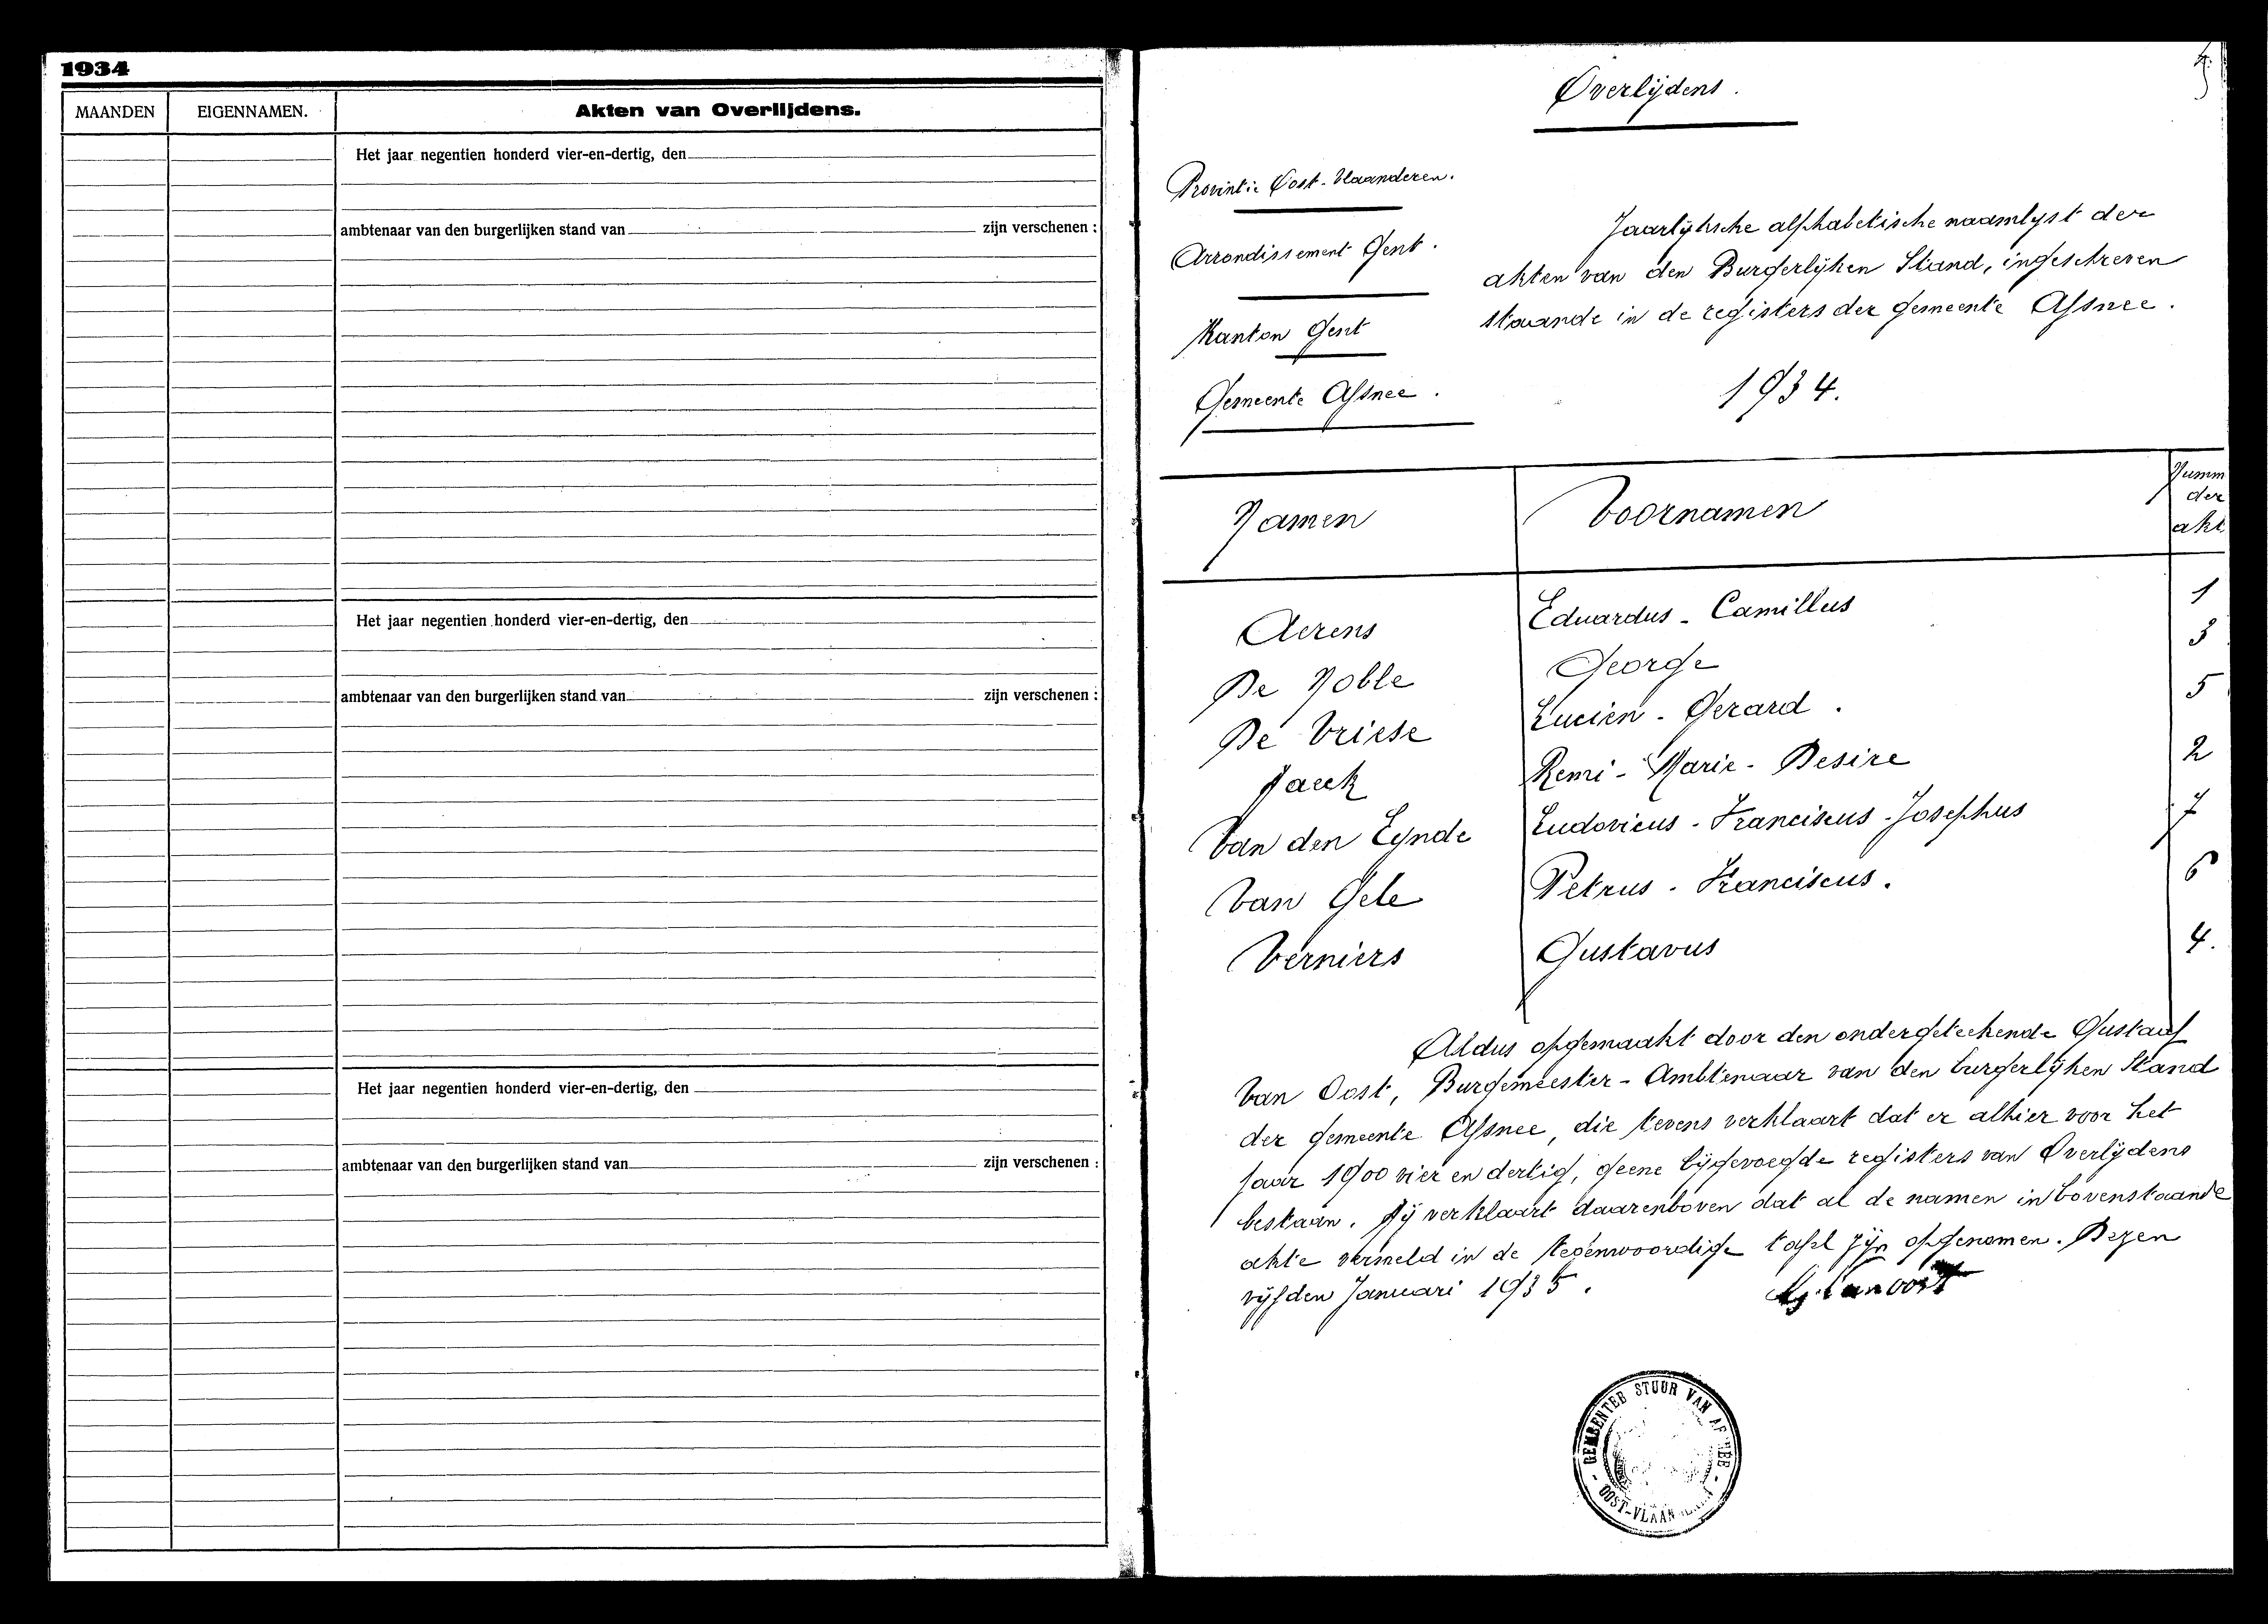 1934
MAANDEN EIGENNAMEN. Akten van Overlijdens.
Het jaar negentien honderd vier-en-dertig, den
ambtenaar van den burgerlijken stand van zijn verschenen :
Het jaar negentien honderd vier-en-dertig, den
ambtenaar van den burgerlijken stand van zijn verschenen :
Het jaar negentien honderd vier-en-dertig, den
ambtenaar van den burgerlijken stand van zijn verschenen :
Overlijdens.
Provintie Oost-Vlaanderen.
Arrondissement Gent.
Kanton Gent
Gemeente Afsnee.
Jaarlijksche alphabetische naamlyst der
akten van den Burgerlijken Stand, ingeschreven
staande in de registers der gemeente Afsnee.
1934.
Namen Voornamen Numm
der
akt
Aerens Eduardus - Camillus 1
De Noble George 3
De Vriese Lucien - Gerard. 5
Jaeck Remi - Marie - Desire 2
Van den Eynde Ludovicus - Franciscus - Josephus 7
Van Gele Petrus - Franciscus. 6
Verniers Gustavus 4.
Aldus opgemaakt door den ondergeteekende Gustaaf
Van Oost, Burgemeester - Ambtenaar van den burgerlijken Stand
der gemeente Afsnee, die tevens verklaart dat er alhier voor het
jaar 1900 vier en dertig, geene bijgevoegde registers van Overlijdens
bestaan. Hij verklaart daarenboven dat al de namen in bovenstaande
akte vermeld in de tegenwoordige tafel zijn opgenomen. Dezen
vijfden Januari 1935.
G. Van oost
GEMEENTEB STUUR VAN AF NEE
OOST-VLAAN